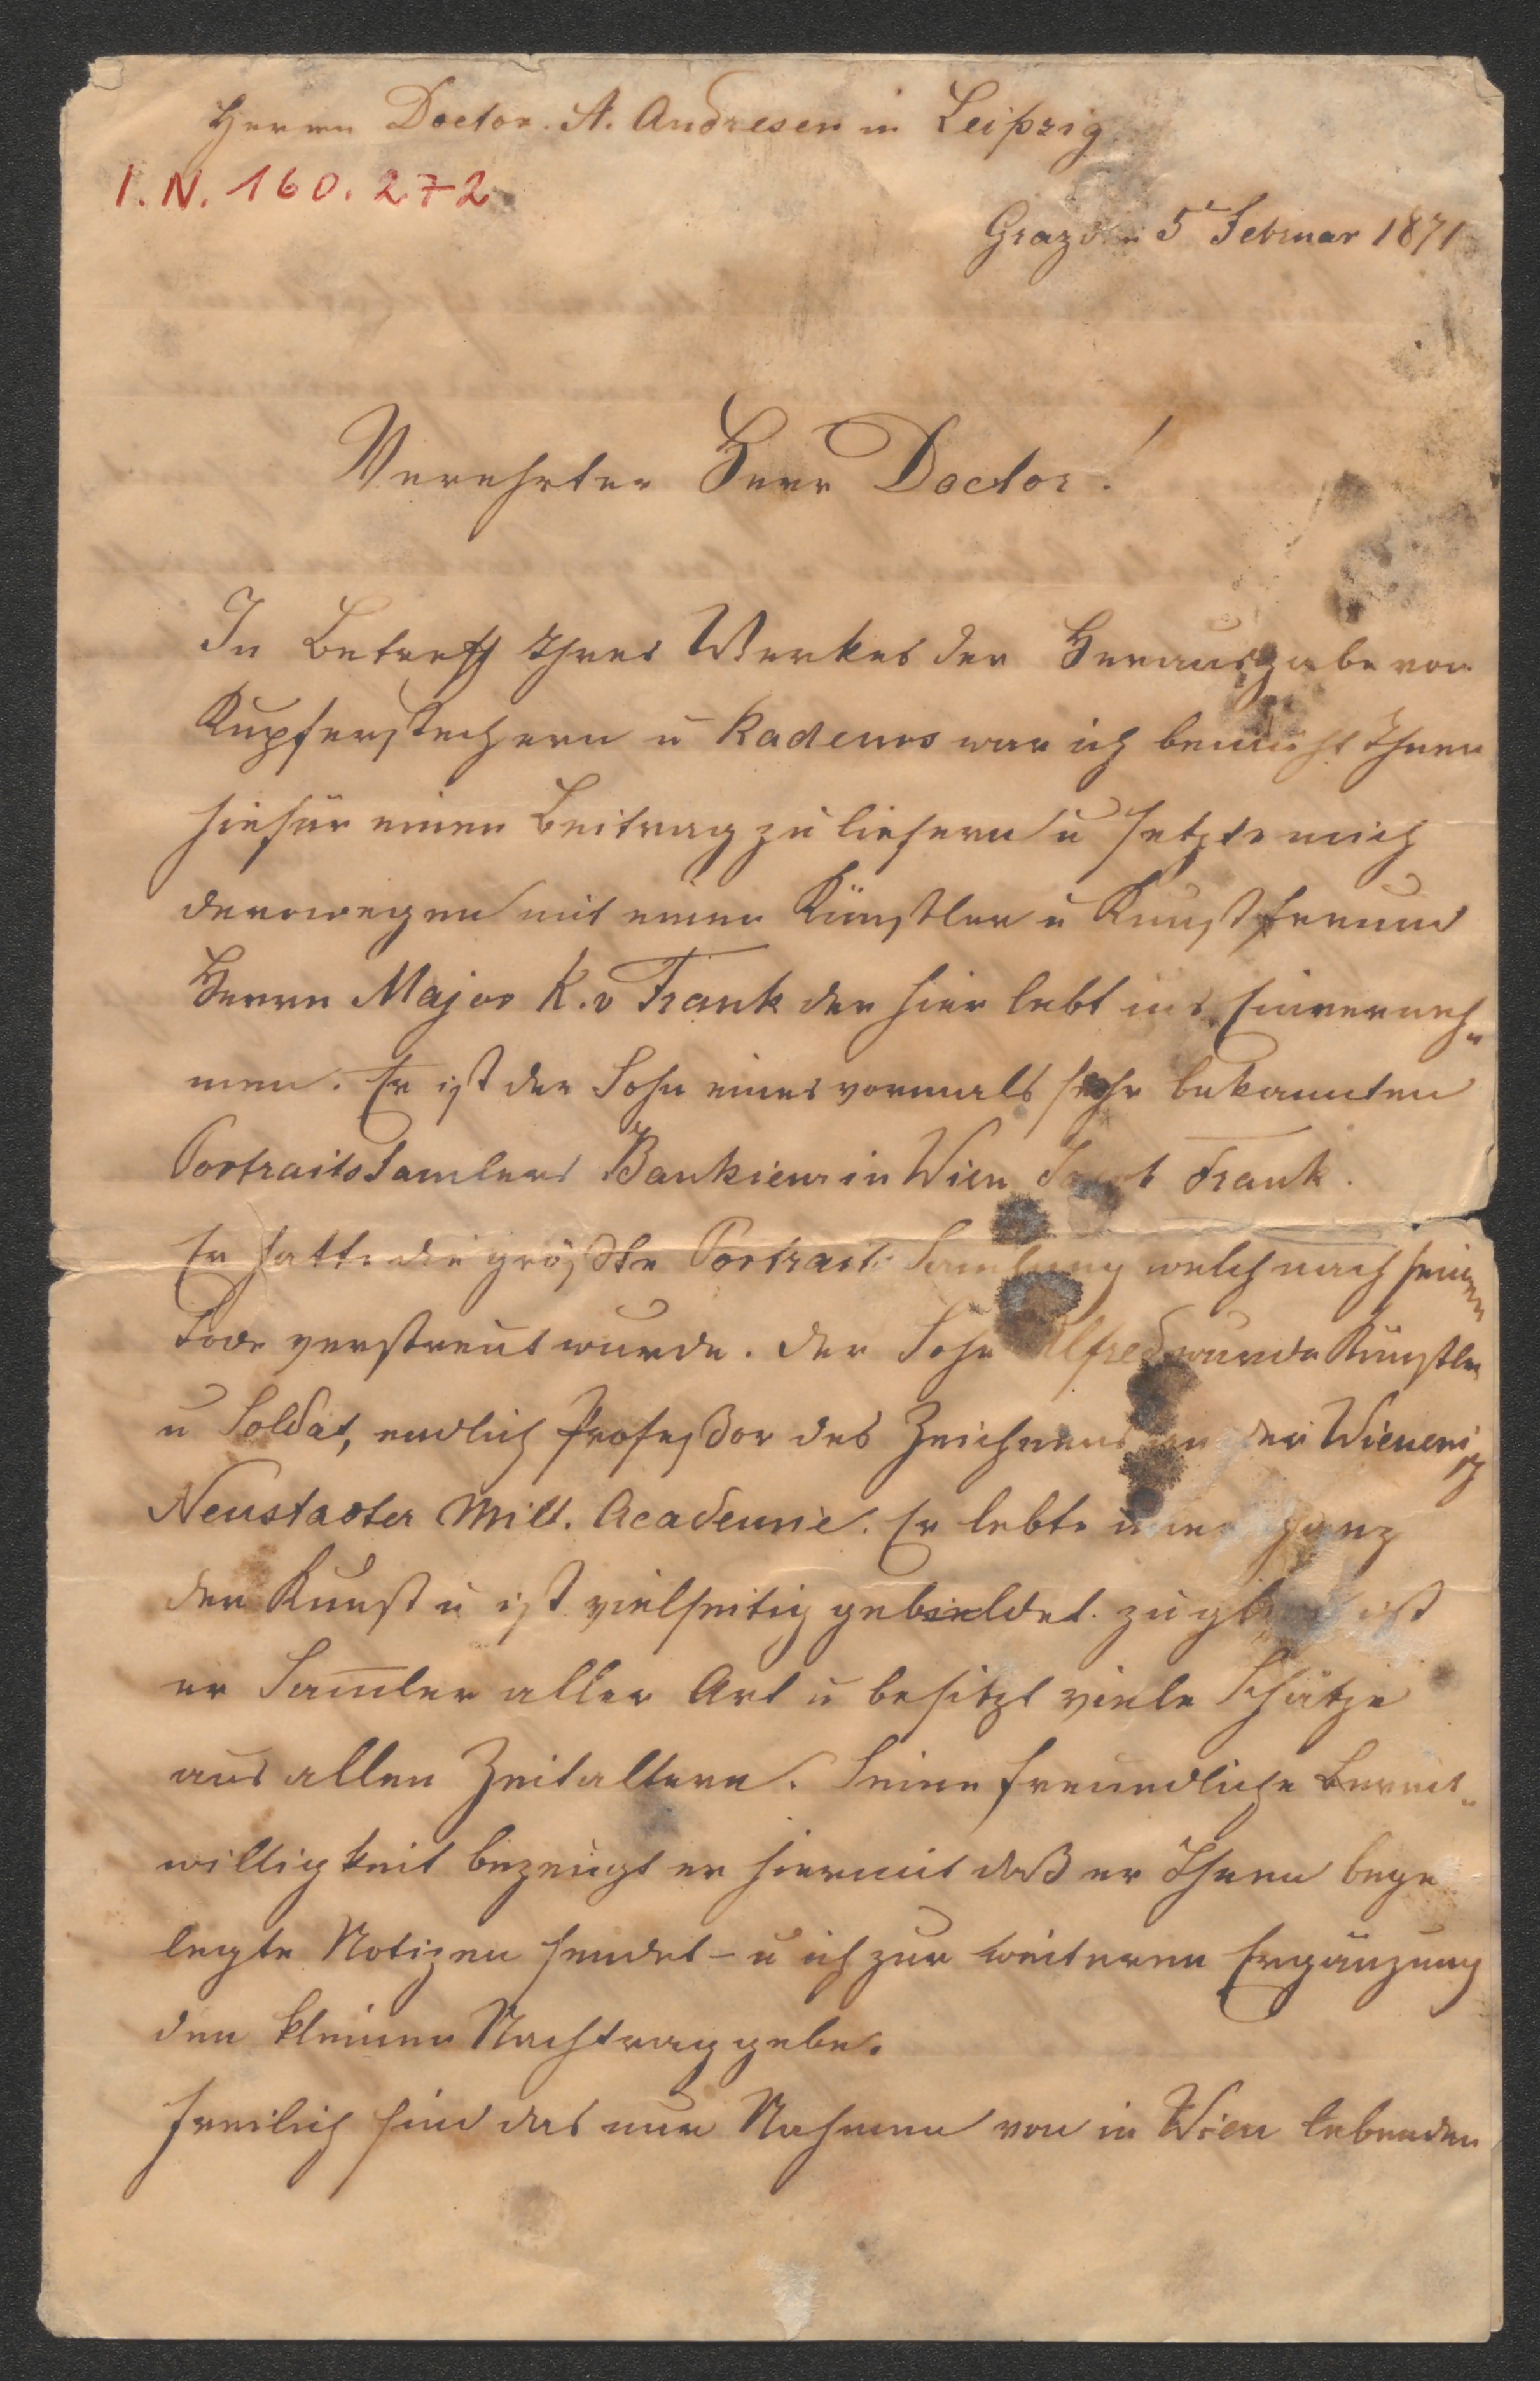 Herrn Doctor. A. Andresen in Leipzig
I.N. 160.272
Graz den 5t Februar 1871
Verehrter Herr Doctor!
In Betreff Ihres Werkes der Herausgabe von
Kupferstechern u Radeurs war ich bemüht Ihnen
hiefür einen Beitrag zu liefern u setzte mich
derowegen mit einen Künstler u Kunstfreund
Herrn Major K. v Frank der hier lebt ins Einverneh„
men. Er ist der Sohn eines vormals sehr bekannten
Portraits Samlers Bankiers in Wien Frank.
Er hatte die größte Portrait Samlung welch nach seinen
Tode verstreut wurde. Der Sohn Alfred wurde Künstler
u Soldat, endlich Profeßor des Zeichnens an der Wiener
Neustadter Milt. Academie. Er lebte immer ganz
der Kunst u ist vielseitig gebieldet. zugleich ist
er Samler aller Art u besitzt viele Schätze
aus allen Zeitaltern. Seine freundliche Bereit„
willigkeit bezeugt er hiermit daß er Ihnen bege
legte Notizen sendet – u ich zur weiteren Ergänzung
den kleinen Nachtrag gebe.
Freilich sind das nur Nahmen von in Wien lebenden